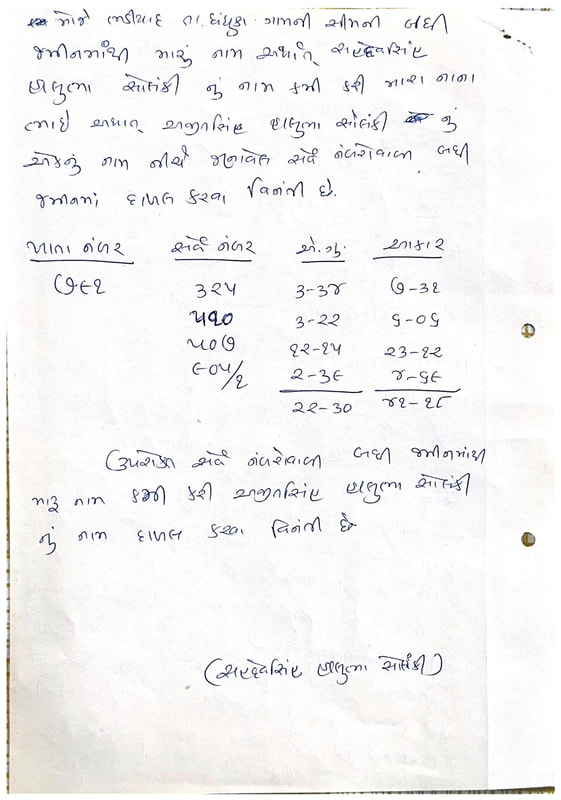 મોજે ભડીયાદ તા. ધંધુકા. ગામની સીમની બધી
જમીનમાંથી મારૂં નામ અર્થાત્ સહદેવસિંહ
હાલુભા સોલંકી નું નામ કમી કરી મારા નાના
ભાઇ અર્થાત્ અજીતસિંહ હાલુભા સોલંકી નું
એકનું નામ નીચે જણાવેલ સર્વે નંબરોવાળી બધી
જમીનમાં દાખલ કરવા વિનંતી છે.
ખાતા નંબર સર્વે નંબર એ.ગુ. આકાર
૭૯૧ ૩૨૫ ૩-૩૪ ૭-૩૧
૫૧૦ ૩-૨૨ ૬-૦૬
૫૦૭ ૧૨-૧૫ ૨૩-૧૨
૯૦૫/૧ ૨-૩૯ ૪-૬૯
૨૨-૩૦ ૪૧-૧૮
ઉપરોક્ત સર્વે નંબરોવાળી બધી જમીનમાંથી
મારૂ નામ કમી કરી અજીતસિંહ હાલુભા સોલંકી
નું નામ દાખલ કરવા વિનંતી છે
(સહદેવસિંહ હાલુભા સોલંકી)